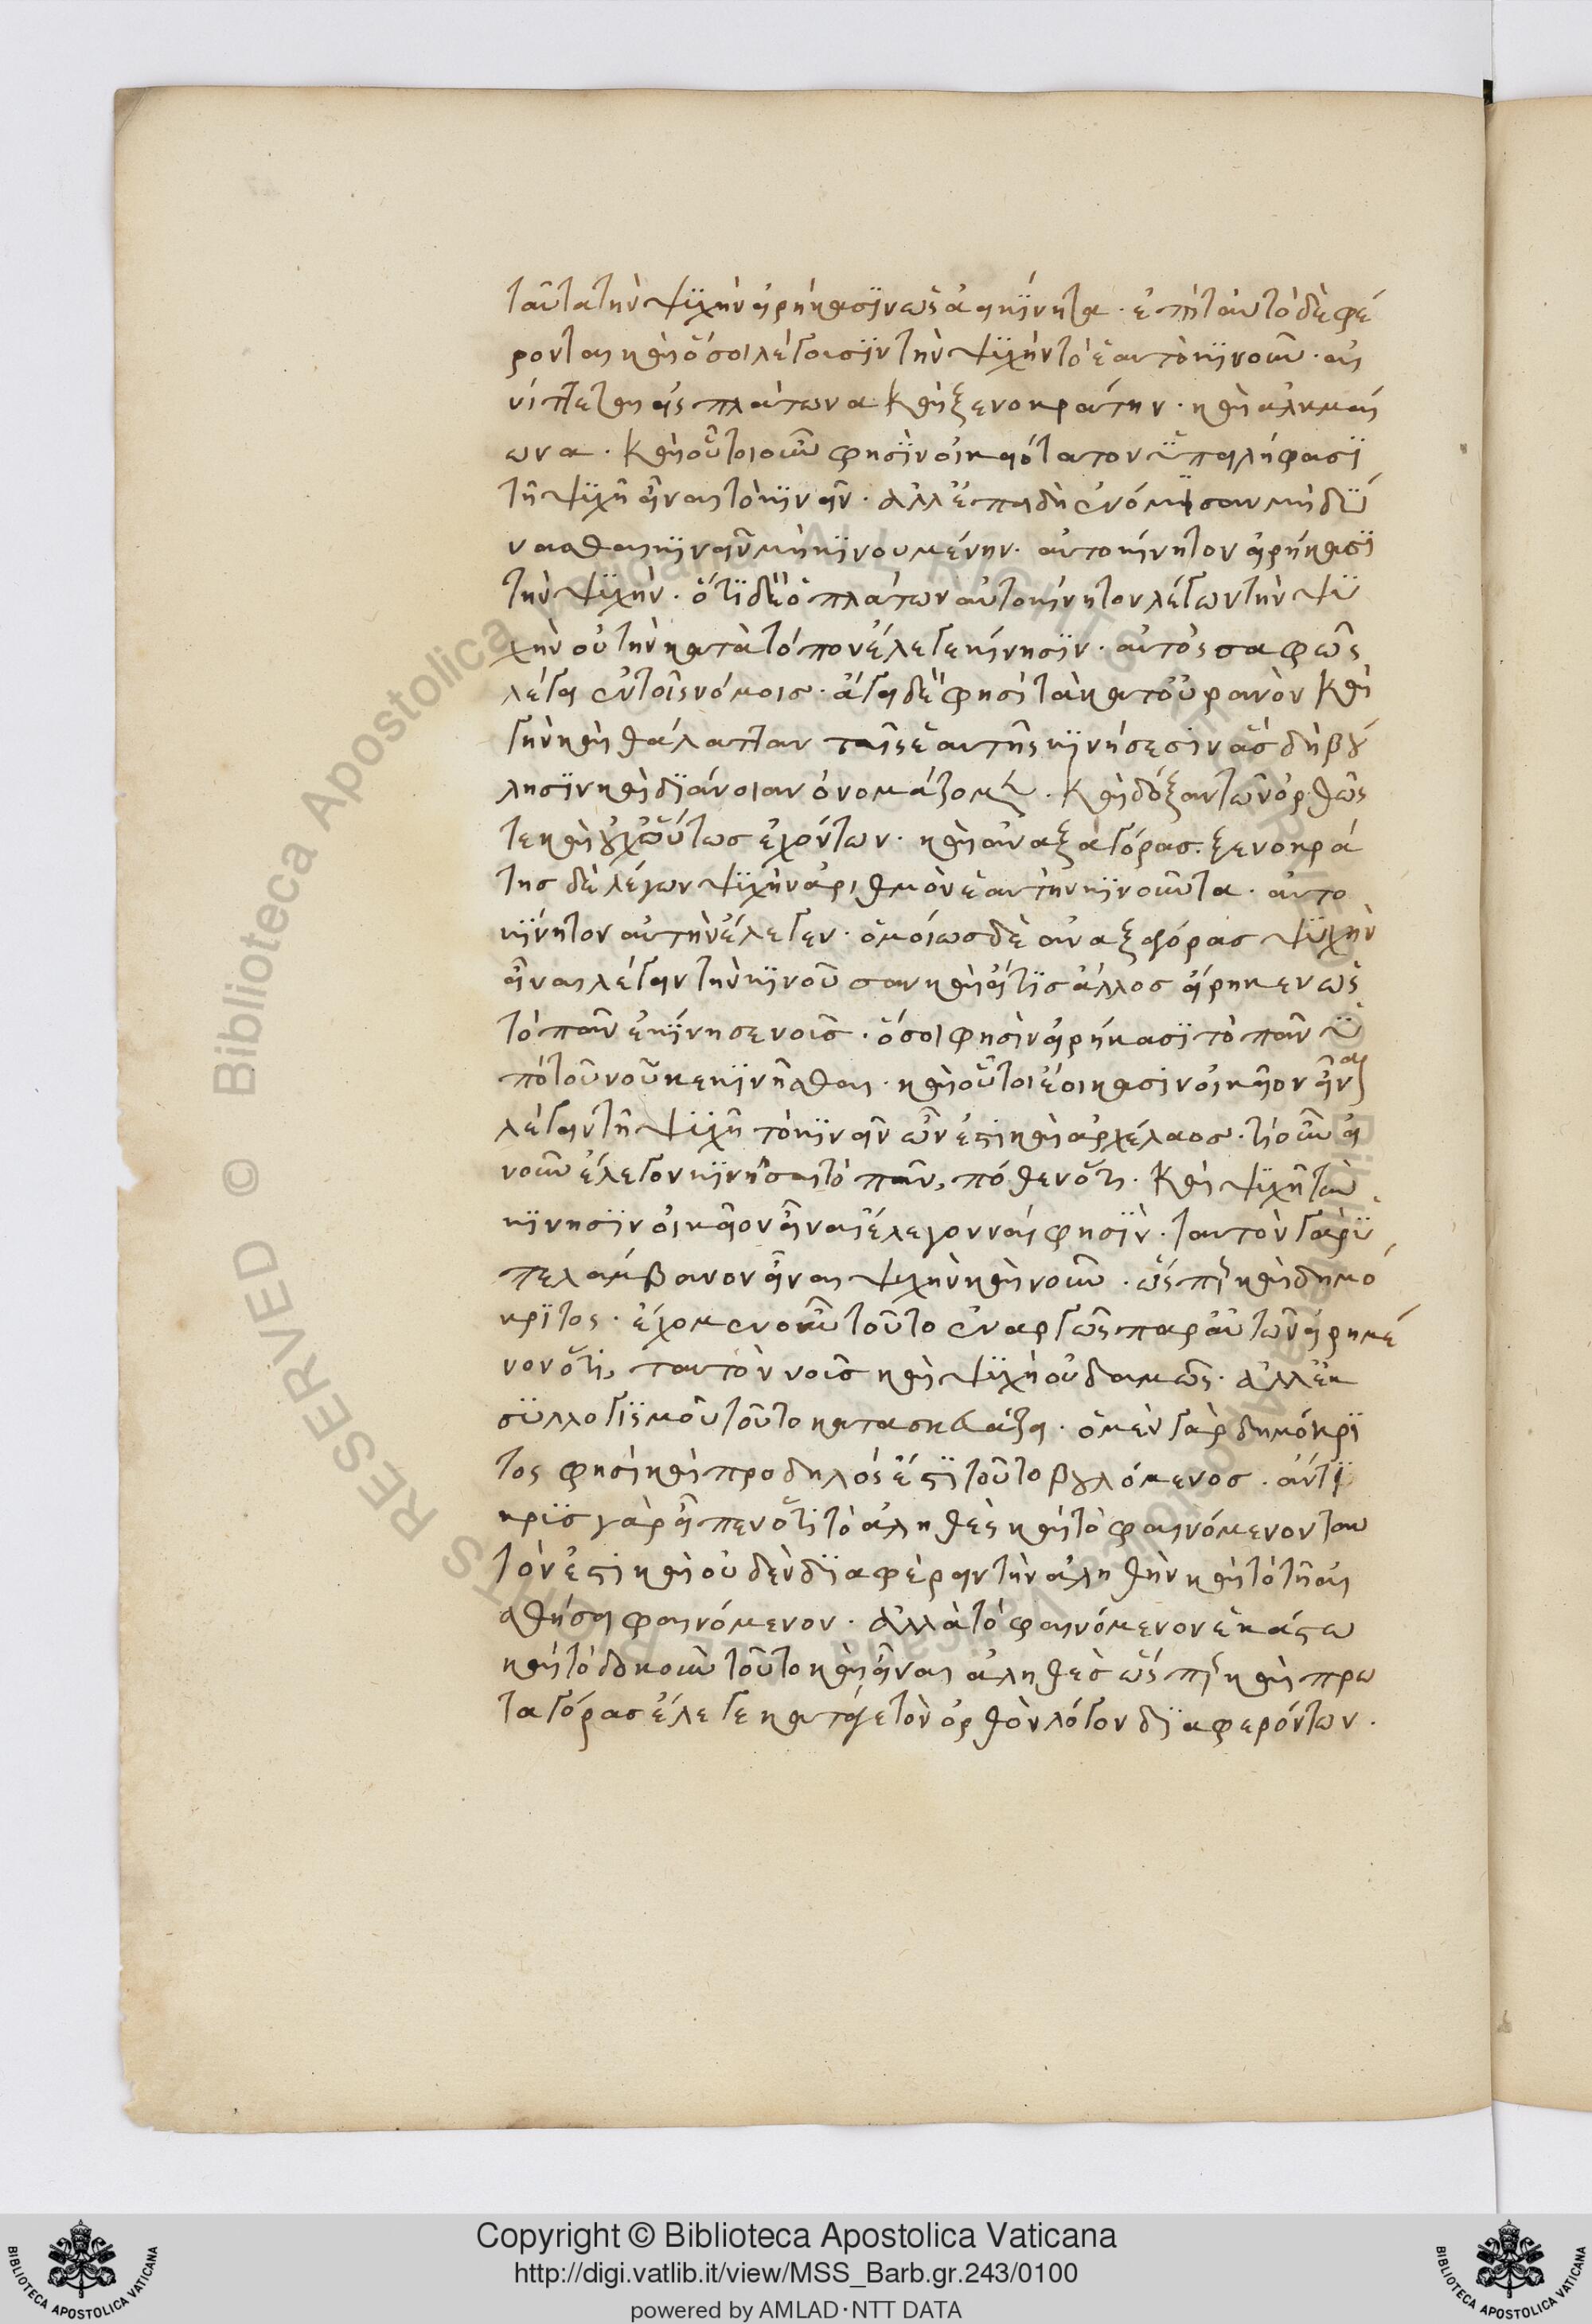 ταῦτα τὴν ψϋχὴν εἰρήκασϊν ὡς ἀεικϊνητα. ἐπὶ ταυτὸ δὲ φέ
ρονται καὶ ὅσοι λέγουσϊν τὴν ψϋχὴν τὸ ἑαυτὸ κϊνοῦν. αἰ
νίττεται εἰς πλάτωνα καὶ ξενοκράτην. καὶ ἀλκμαί
ωνα. καὶ οὗτοι οὖν φησϊν οἰκειότατον ϋπειλήφασϊ
τῇ ψϋχῇ εἶναι τὸ κϊνεῖν. ἀλλ' ἐπειδὴ ἐνόμισαν μὴ δϋ
νασθαι κϊνεῖν μὴ κϊνουμένην. αὐτοκίνητον εἰρήκασϊ
τὴν ψϋχήν. ὅτϊ δὲ ὁ πλάτων αὐτοκίνητον λέγων τὴν ψϋ
χὴν οὐ τὴν κατὰ τόπον ἔλεγε κίνησϊν. αὐτὸς σαφῶς
λέγει ἐν τοῖς νόμοισ. ἄγει δέ φησί τὰ κατ' οὐρανὸν καὶ
γῆν καὶ θάλατταν ταῖς ἑαυτῆς κϊνήσεσιν ἃς δὴ βού
λησϊν καὶ δϊάνοιαν ὀνομάζομεν. καὶ δόξαν τῶν ὀρθῶς
τε καὶ οὐχ οὕτωσ ἐχόντων. καὶ ἀναξαγόρασ. ξενοκρά
τησ δὲ λέγων ψϋχὴν ἀριθμὸν ἑαυτὴν κϊνοῦντα. αὐτο
κϊνητον αὐτὴν ἔλεγεν. ὁμοίωσ δὲ ἀναξαγόρασ ψϋχὴν
εἶναι λέγειν τὴν κϊνοῦσαν καὶ εἴ τϊσ ἄλλοσ εἴρηκεν ὡς
τὸ πᾶν ἐκϊνησε νοῦσ. ὅσοι φησὶν εἰρήκασϊ τὸ πᾶν ϋ
πὸ τοῦ νοῦ κεκϊνῆσθαι. καὶ οὗτοι ἐοίκασιν οἰκεῖον εἶναι
λέγειν τῇ ψϋχῇ τὸ κϊνεῖν ὧν ἐστι καὶ ἀρχέλαοσ. τί οὖν εἰ
νοῦν ἔλεγον κϊνῆσαι τὸ πᾶν, πόθεν ὅτι. καὶ ψϋχῇ τὴν
κϊνησϊν οἰκεῖον εἶναι ἔλεγον ναί φησϊν. ταυτὸν γὰρ ϋ
πελάμβανον εἶναι ψυχὴν καὶ νοῦν. ὥσπερ καὶ δημό
κρϊτος. ἔχομεν οὖν τοῦτο ἐναργῶς παρ' αὐτῶν εἰρημέ
νον ὅτι, ταυτὸν νοῦσ καὶ ψϋχὴ οὐδαμῶς. ἀλλ' ἐκ
σϋλλογϊσμοῦ τοῦτο κατασκευάζει. ὁ μὲν γὰρ δημόκρϊ
τος φησὶ καὶ προδηλός ἐστϊ τοῦτο βουλόμενοσ. ἀντϊ
κρϋσ γὰρ εἶπεν ὅτι τὸ ἀληθὲς καὶ τὸ φαινόμενον ταυ
τὸν ἐστι καὶ οὐδὲν δϊαφέρειν τὴν ἀληθὴν καὶ τὸ τῇ αἰ
σθήσει φαινόμενον. ἀλλὰ τὸ φαινόμενον ἑκάστω
καὶ τὸ δοκοῦν τοῦτο καὶ εἶναι ἀληθὲσ ὥσπερ καὶ πρω
ταγόρασ ἔλεγε κατά γε τὸν ὀρθὸν λόγον δϊαφερόντων.
Copyright © Biblioteca Apostolica Vaticana
http://digi.vatlib.it/view/MSS_Barb.gr.243/0100
powered by AMLAD·NTT DATA
BIBLIOTECA APOSTOLICA VATICANA
BIBLIOTECA APOSTOLICA VATICANA